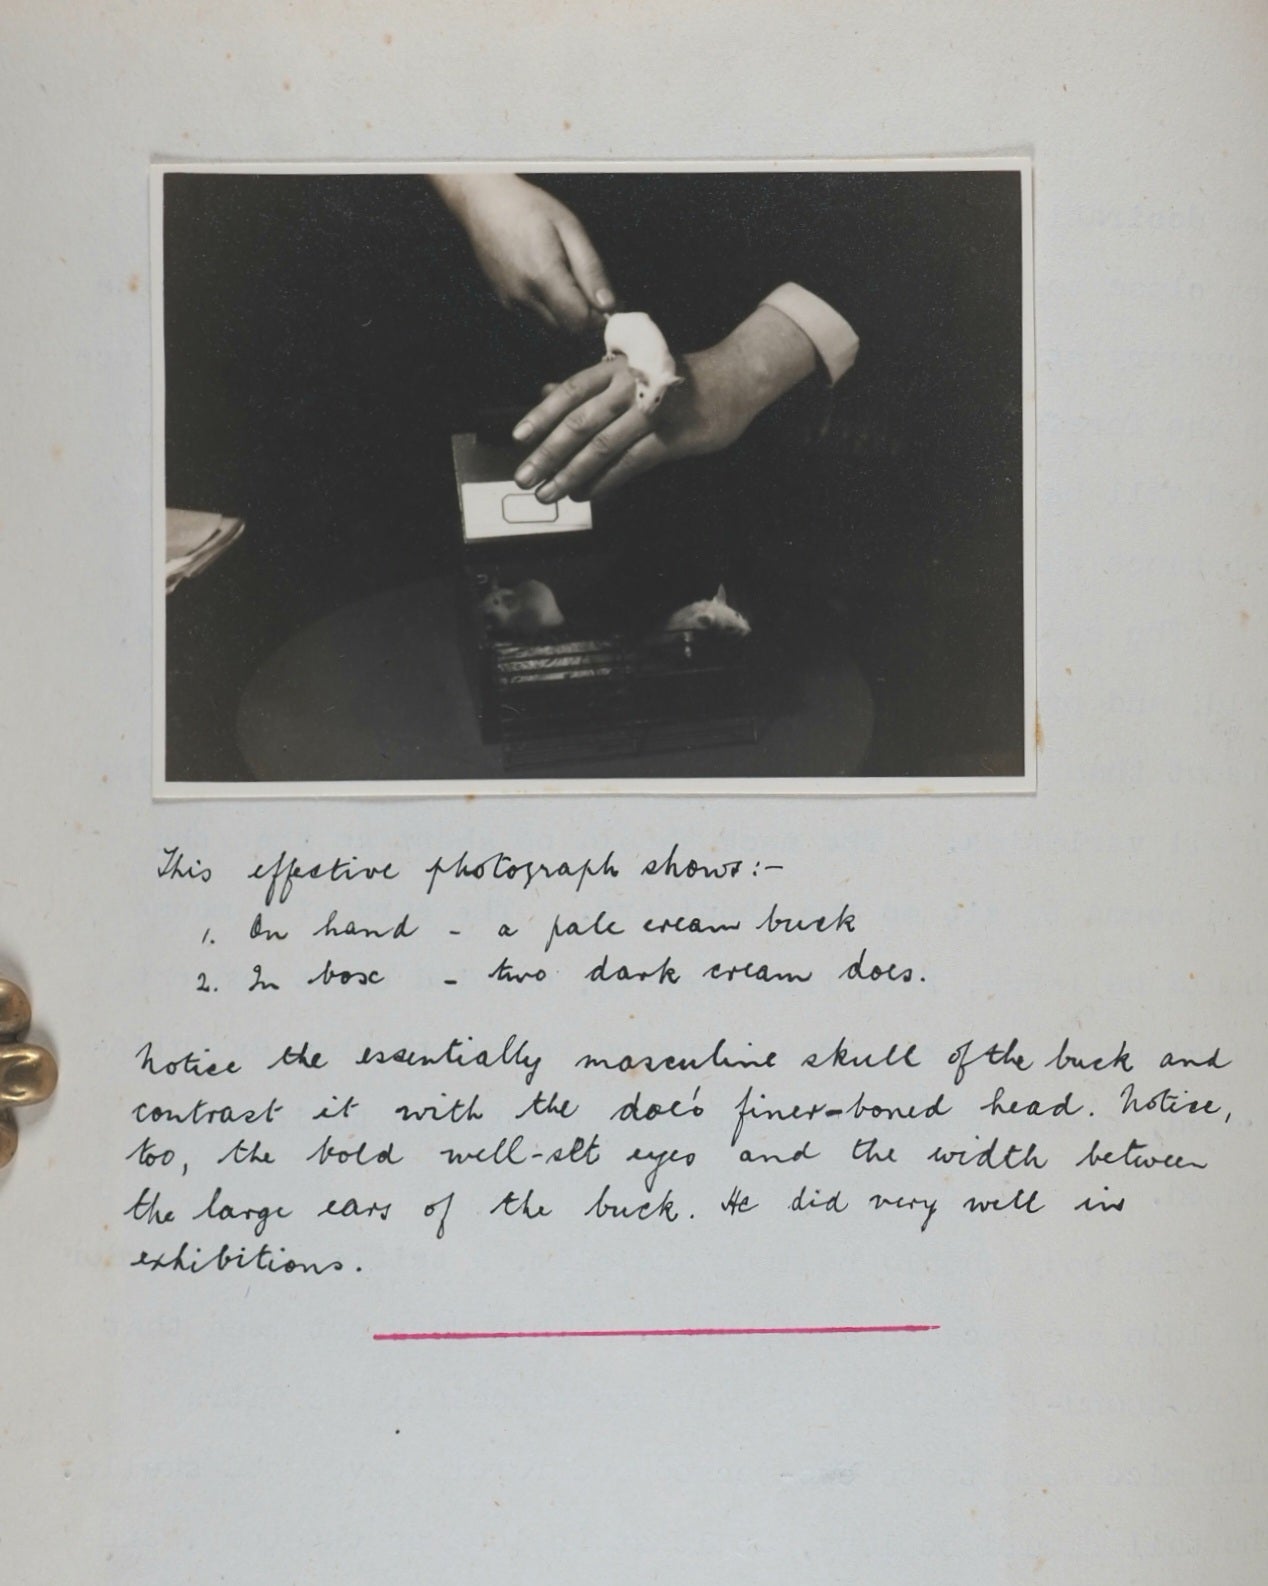 This effective photograph shows:-
1. On hand - a pale cream buck
2. In box - two dark cream does.
Notice the essentially masculine skull of the buck and
contrast it with the doe's finer-boned head. Notice,
too, the bold well-set eyes and the width between
the large ears of the buck. He did very well in
exhibitions.